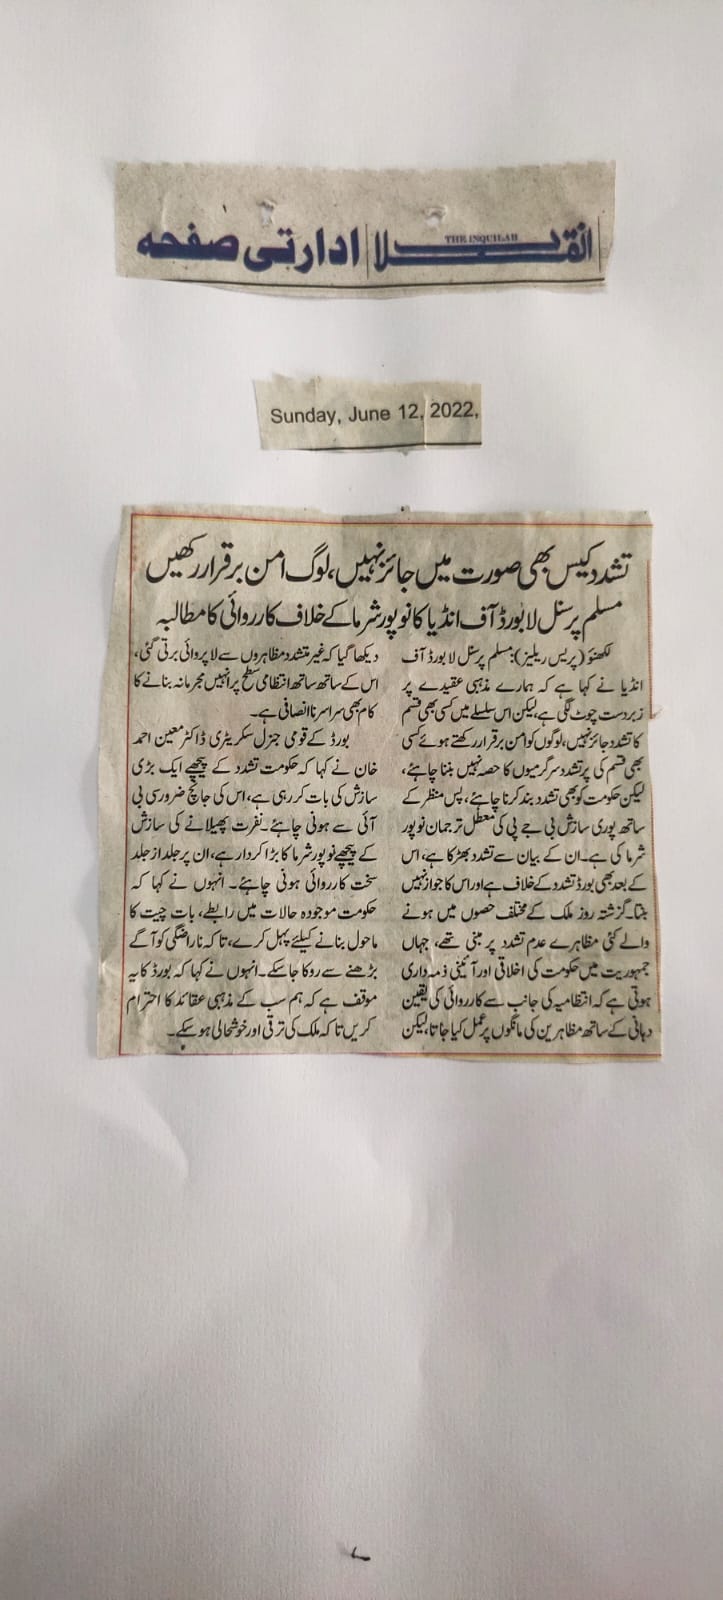 انقلاب
THE INQUILAB
ادارتی صفحه
Sunday, June 12, 2022,
تشدد کیس بھی صورت میں جائز نہیں، لوگ امن برقرار رکھیں
مسلم پرسنل لا بورڈ آف انڈیا کا نوپور شرما کے خلاف کارروائی کا مطالبہ
لکھنؤ (پریس ریلیز): مسلم پرسنل لا بورڈ آف
انڈیا نے کہا ہے کہ ہمارے مذہبی عقیدے پر
زبردست چوٹ لگی ہے، لیکن اس سلسلے میں کسی بھی قسم
کا تشدد جائز نہیں، لوگوں کو امن برقرار رکھتے ہوئے کسی
بھی قسم کی پر تشدد سرگرمیوں کا حصہ نہیں بننا چاہئے،
لیکن حکومت کو بھی تشدد بند کرنا چاہئے، پس منظر کے
ساتھ پوری سازش بی جے پی کی معطل ترجمان نوپور
شرما کی ہے۔ ان کے بیان سے تشدد بھڑکا ہے، اس
کے بعد بھی بورڈ تشدد کے خلاف ہے اور اس کا جواز نہیں
بنتا۔ گزشتہ روز ملک کے مختلف حصوں میں ہونے
والے کئی مظاہرے عدم تشدد پر مبنی تھے، جہاں
جمہوریت میں حکومت کی اخلاقی اور آئینی ذمہ داری
ہوتی ہے کہ انتظامیہ کی جانب سے کارروائی کی یقین
دہانی کے ساتھ مظاہرین کی مانگوں پر عمل کیا جاتا، لیکن
دیکھا گیا کہ غیر متشدد مظاہروں سے لاپروائی برتی گئی،
اس کے ساتھ ساتھ انتظامی سطح پر انہیں مجرمانہ بنانے کا
کام بھی سراسر ناانصافی ہے۔
بورڈ کے قومی جنرل سکریٹری ڈاکٹر معین احمد
خان نے کہا کہ حکومت تشدد کے پیچھے ایک بڑی
سازش کی بات کر رہی ہے، اس کی جانچ ضروری سی بی
آئی سے ہونی چاہئے۔ نفرت پھیلانے کی سازش
کے پیچھے نوپور شرما کا بڑا کردار ہے، ان پر جلد از جلد
سخت کارروائی ہونی چاہئے۔ انہوں نے کہا کہ
حکومت موجودہ حالات میں رابطے، بات چیت کا
ماحول بنانے کیلئے پہل کرے، تاکہ ناراضگی کو آگے
بڑھنے سے روکا جا سکے۔ انہوں نے کہا کہ بورڈ کا یہ
موقف ہے کہ ہم سب کے مذہبی عقائد کا احترام
کریں تاکہ ملک کی ترقی اور خوشحالی ہو سکے۔